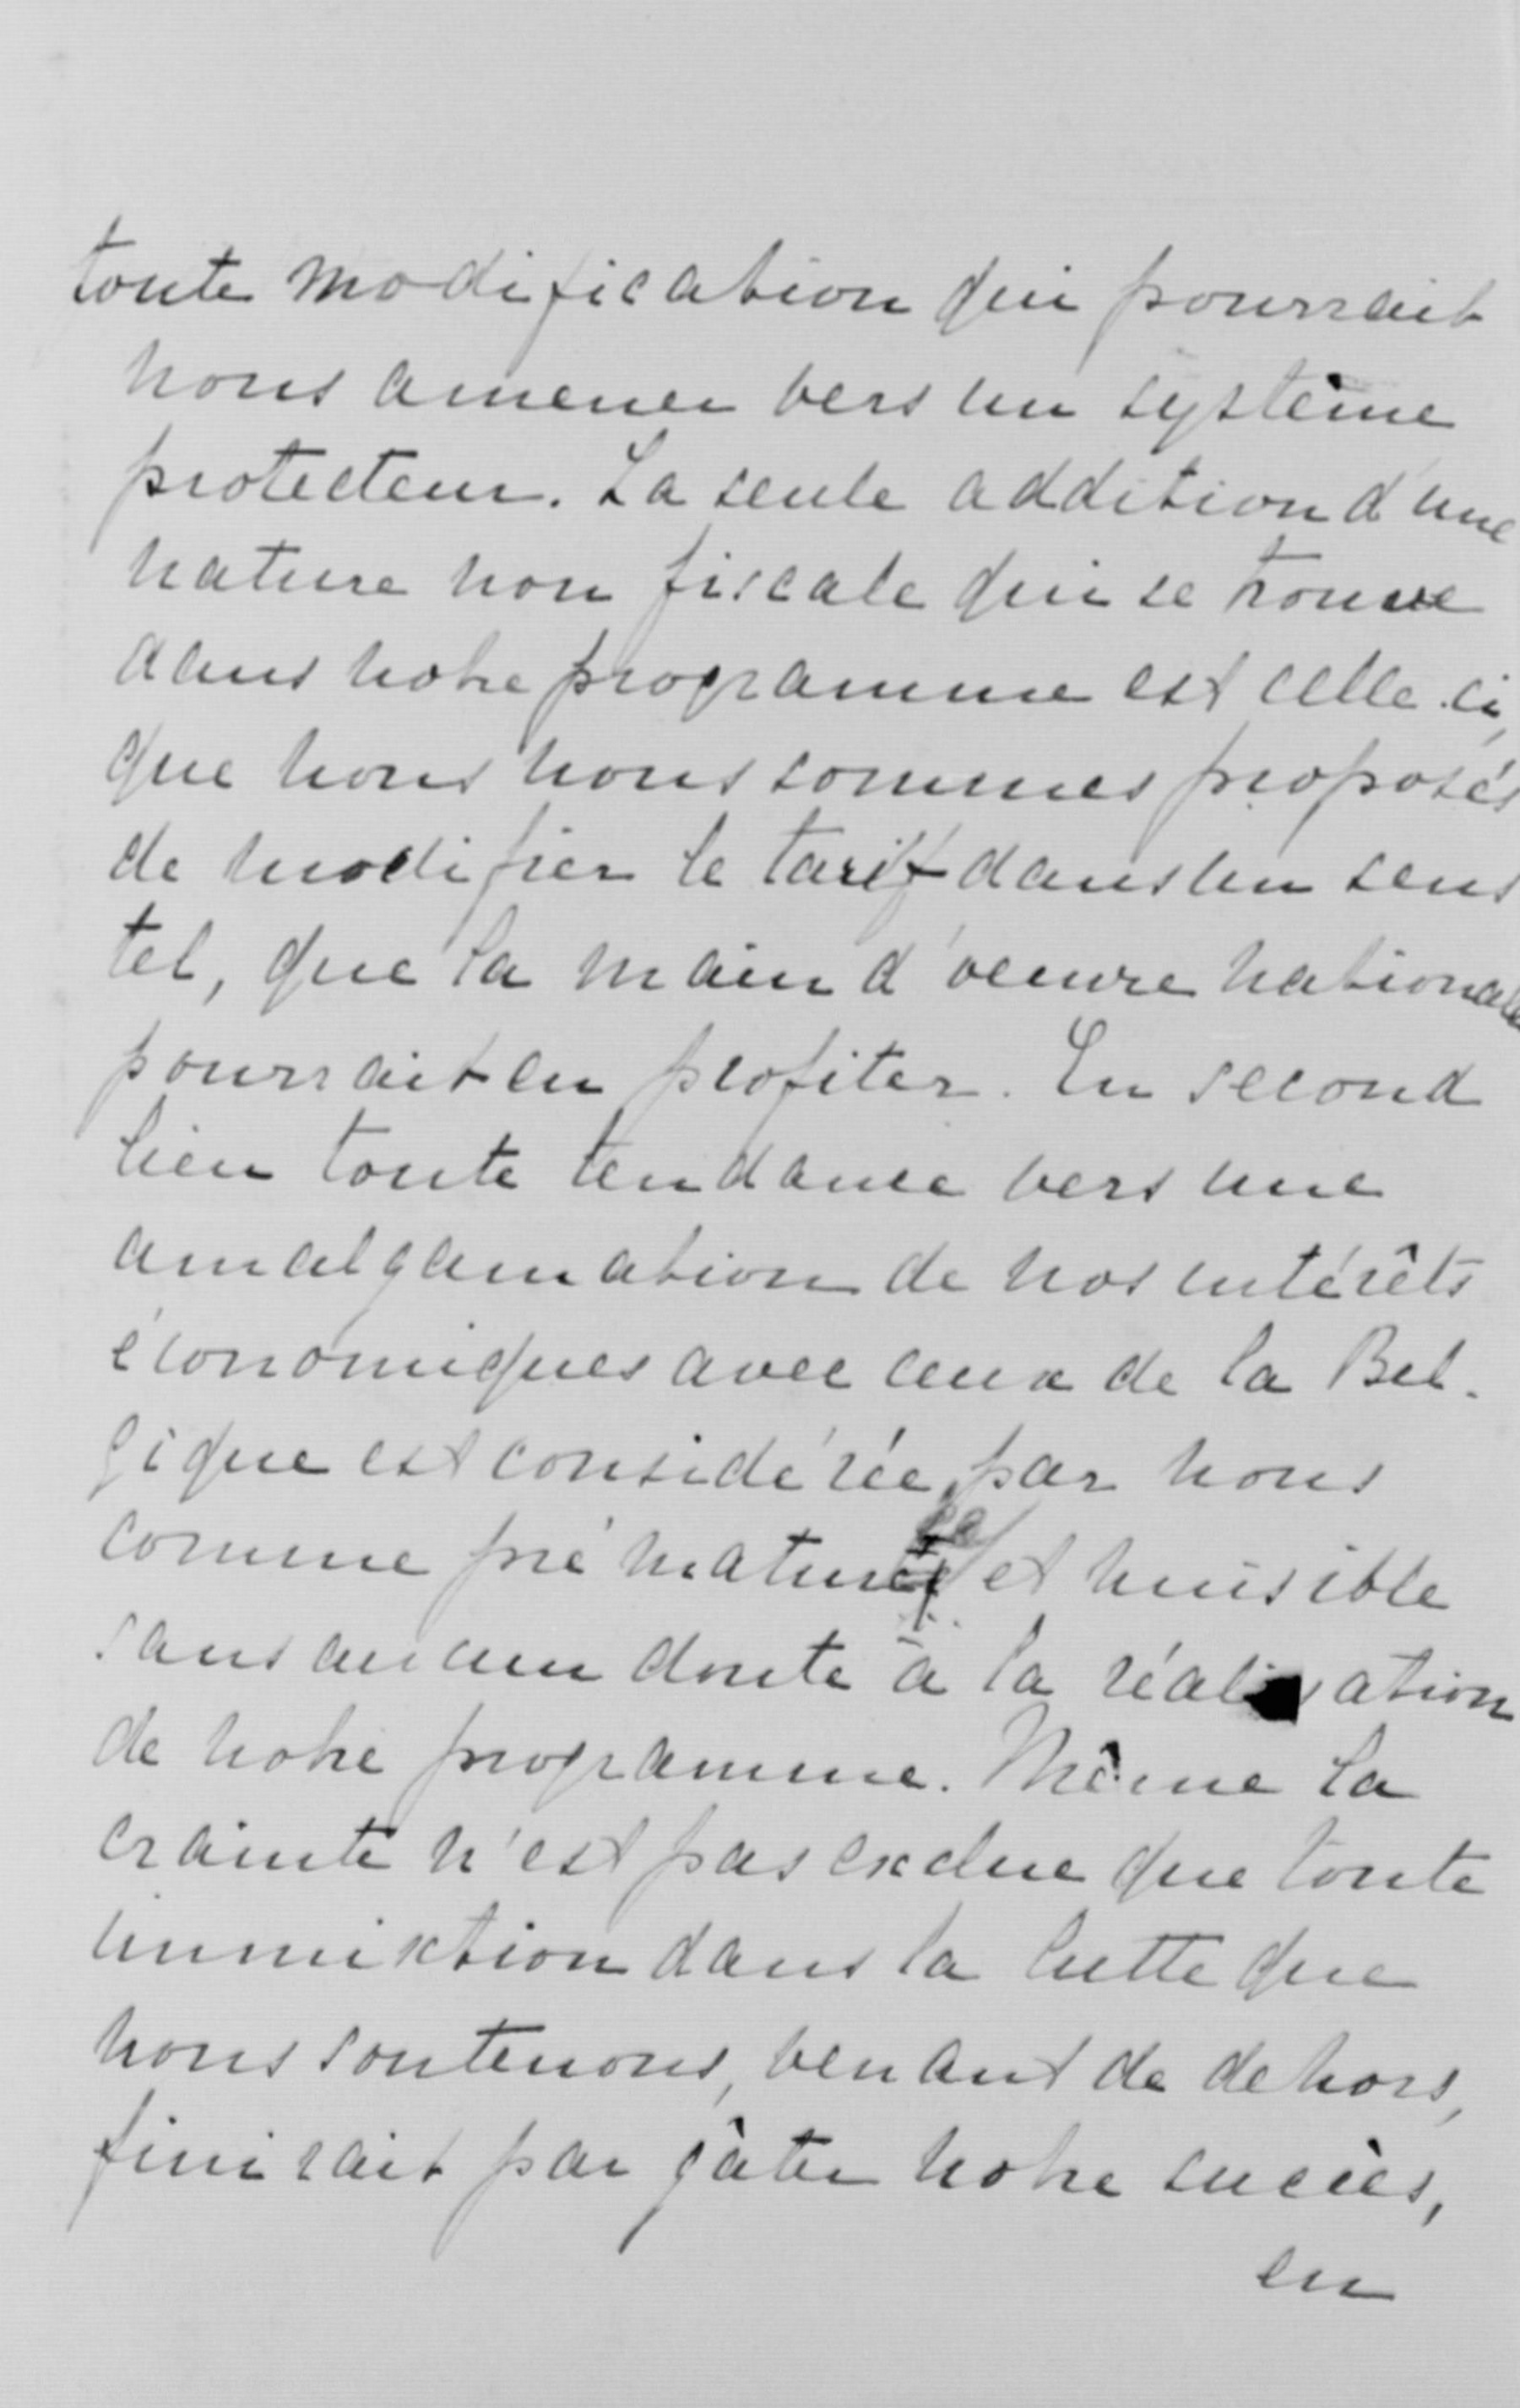 toute modification qui pourrait
nous amener vers un système
protecteur. La seule addition d'une
nature non fiscale qui se trouve
dans notre programme est celle-ci,
que nous nous sommes proposés
de modifier le tarif dans un sens
tel, que la main d'oeuvre nationale
pourrait en profiter. En second
lieu toute tendance vers une
amalgamation de nos intérêts
économiques avec ceux de la Bel-
gique est considérée, par nous
comme prématurée et nuisible
sans aucun doute à la réalisation
de notre programme. Même la
crainte n'est pas exclue que toute
immixtion dans la lutte que
nous soutenons, venant de dehors,
finirait par gâter notre succès,
en